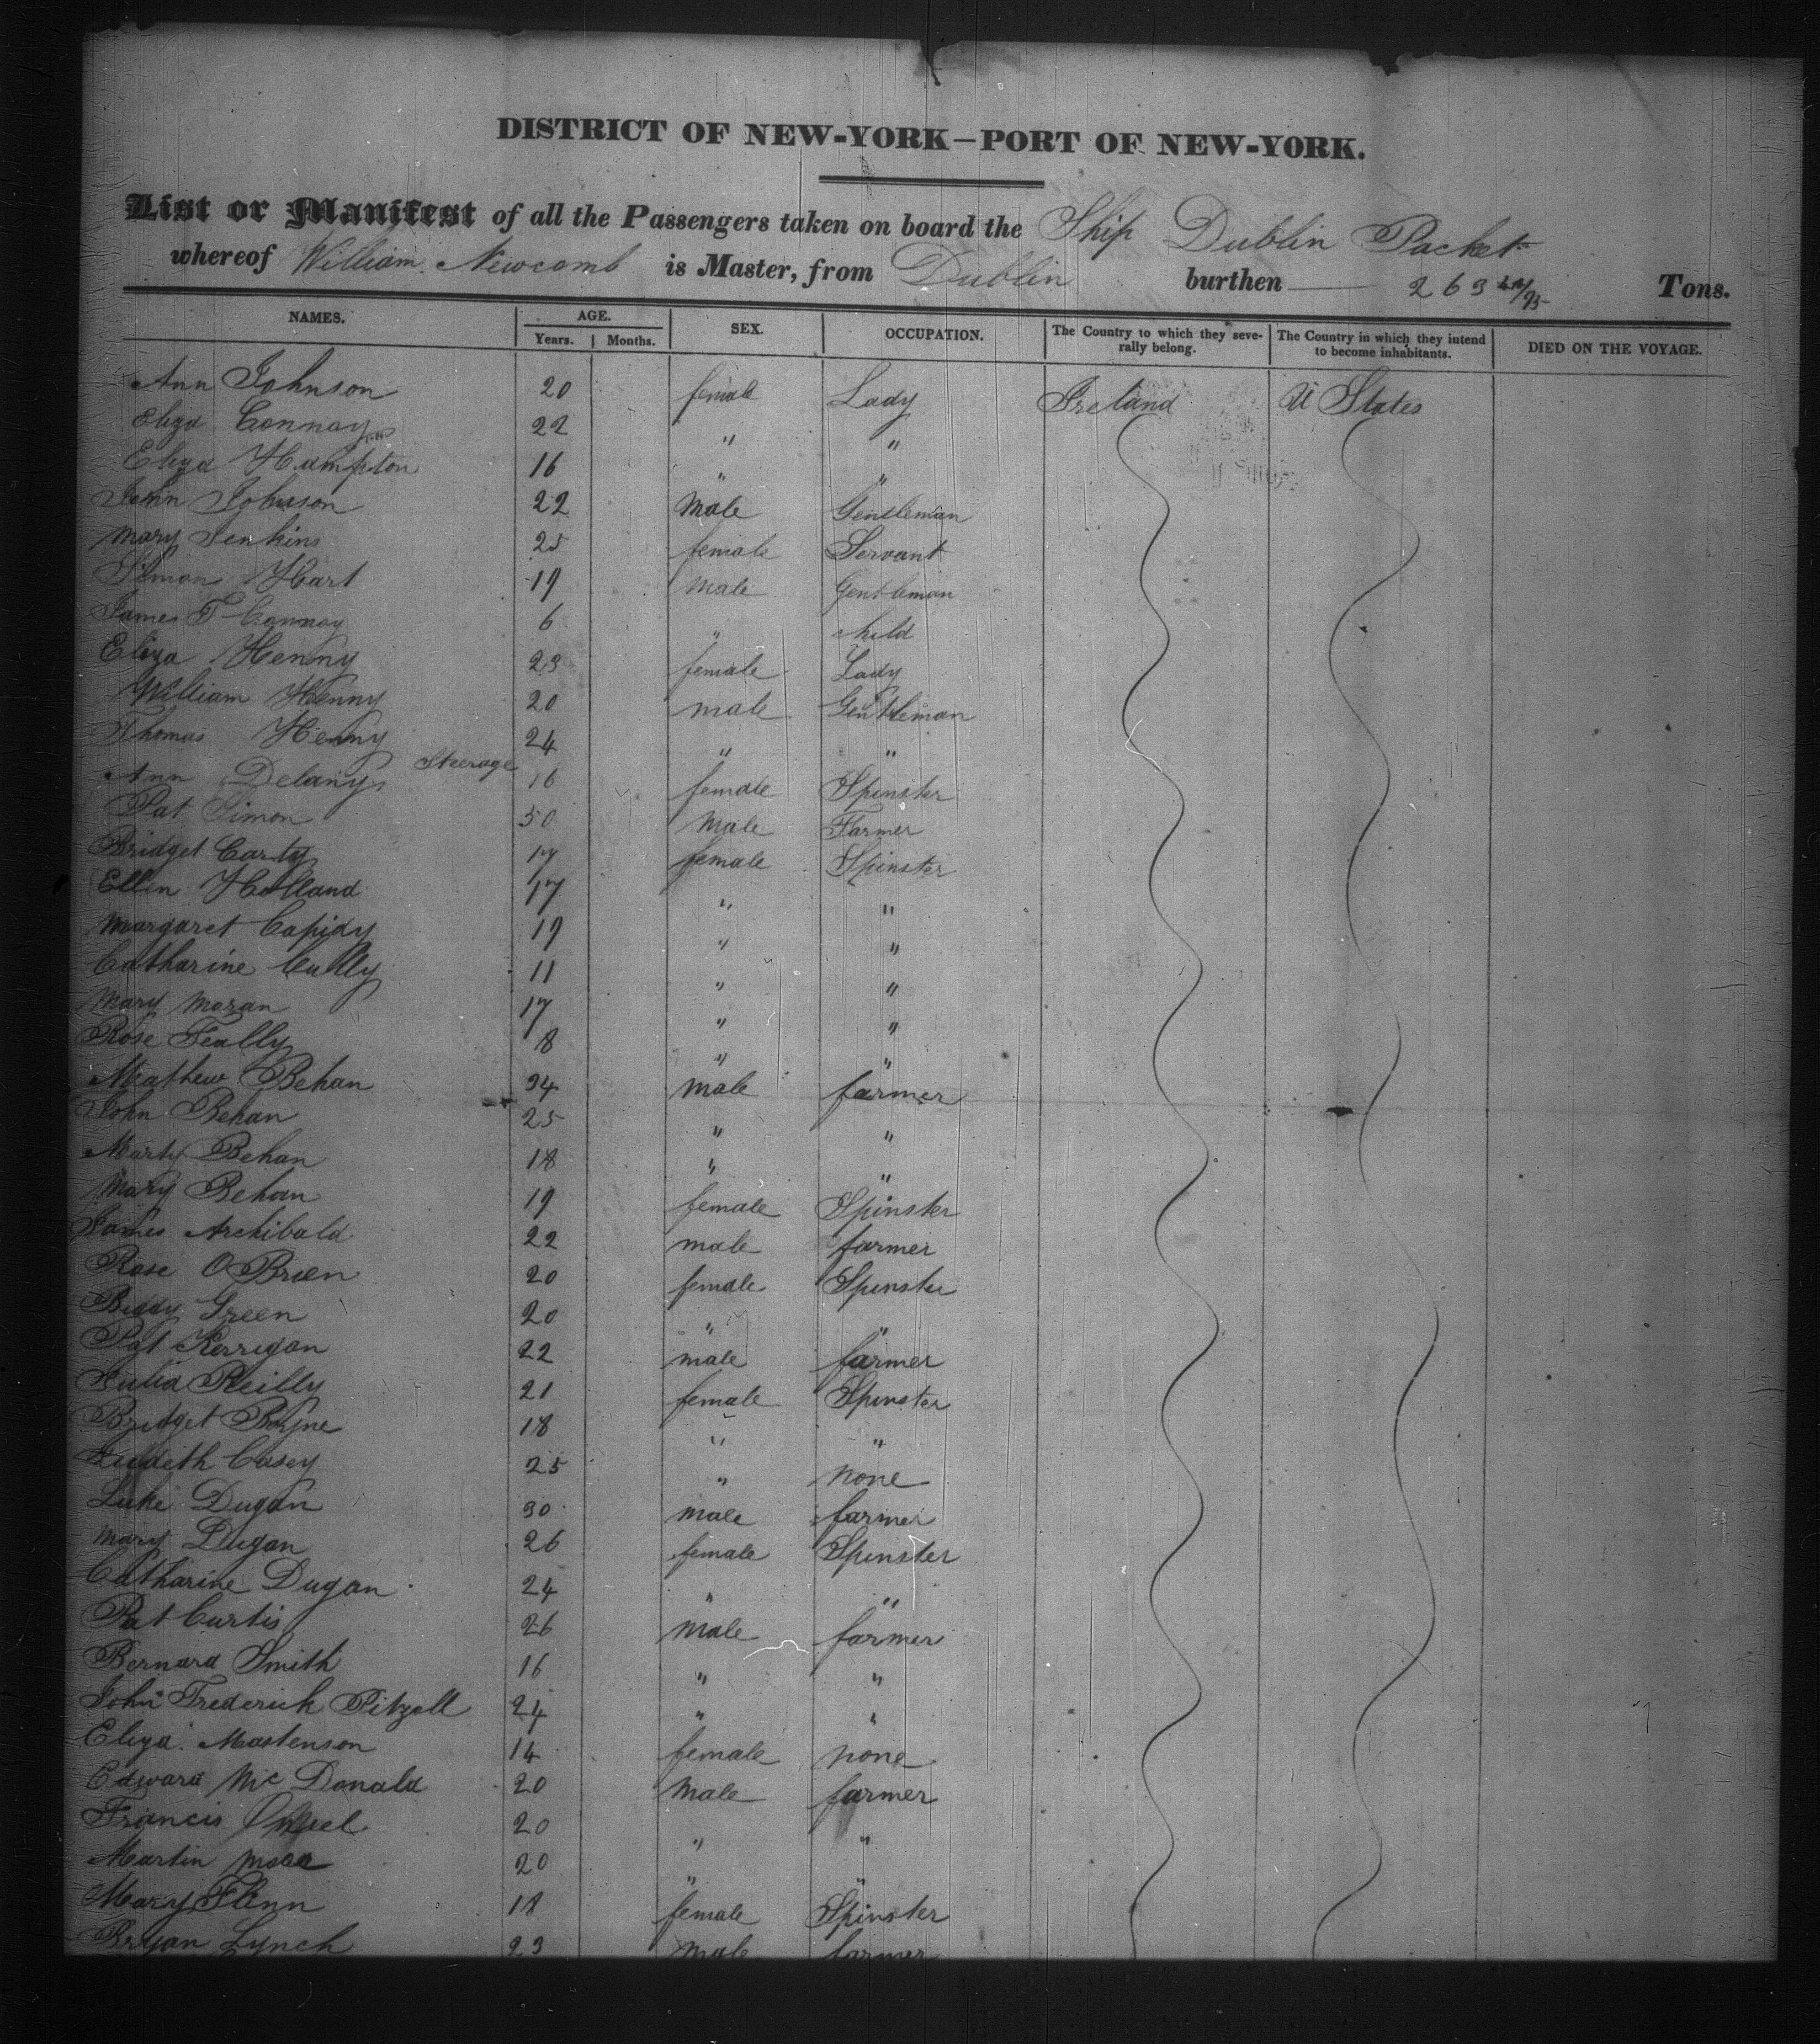 DISTRICT OF NEW-YORK—PORT OF NEW-YORK.
List or Manifest of all the Passengers taken on board the Ship Dublin Packet
whereof William Newcomb is Master, from Dublin burthen — 263 Tons.
NAMES. AGE. SEX. OCCUPATION. The Country to which they severally belong. The Country in which they intend to become inhabitants. DIED ON THE VOYAGE.
Years. Months.
Ann Johnson 20 female Lady Ireland U States
Eliza Connoy 22 " "
Eliza Hampton 16 " "
John Johnson 22 Male Gentleman
Mary Jenkins 25 female Servant
Simon Hart 19 Male Gentleman
James T Connoy 6 " child
Eliza Henny 23 female Lady
William Henny 20 male Gentleman
Thomas Henny 24 " "
Steerage
Ann Delany 16 female Spinster
Pat Simon 50 Male Farmer
Bridget Carty 17 female Spinster
Ellen Holland 17 " "
Margaret Capidy 19 " "
Catharine Cully 11 " "
Mary Moran 17 " "
Rose Feally 18 " "
Mathew Behan 34 Male farmer
John Behan 25 " "
Marty Behan 18 " "
Mary Behan 19 female Spinster
James Archibald 22 male farmer
Rose O Brien 20 female Spinster
Biddy Green 20 " "
Pat Kerrigan 22 male farmer
Julia Reilly 21 female Spinster
Bridget Boyne 18 " "
Judeth Casey 25 " none
Luke Dugan 30 male farmer
Mary Dugan 26 female Spinster
Catharine Dugan 24 " "
Pat Curtis 26 Male farmer
Bernard Smith 16 " "
John Frederick Pitzall 24 " "
Eliza Mastenson 14 female none
Edward McDonald 20 Male farmer
Francis 20 " "
Martin 20 " "
Mary Flinn 18 female Spinster
Bryan Lynch 23 male farmer